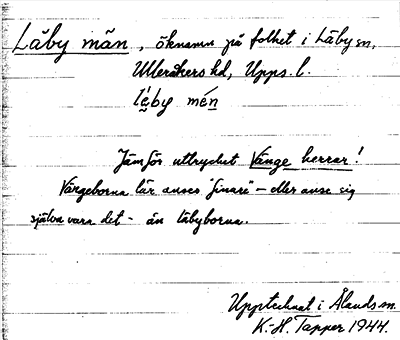 Läby män, öknamn på folket i Läby sn,
Ulleråkers hd, Upps. l.
lę̈by mén
Jämför uttrycket Vänge herrar!
Vängeborna lär anses "finare" – eller anse sig
själva vara det – än läbyborna.
Upptecknat i Ålands sn.
K.-H. Tapper 1944.